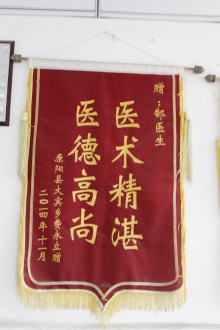 赠：郜医生
医术精湛
医德高尚
原阳县大宾乡费永立赠
二〇一四年十一月